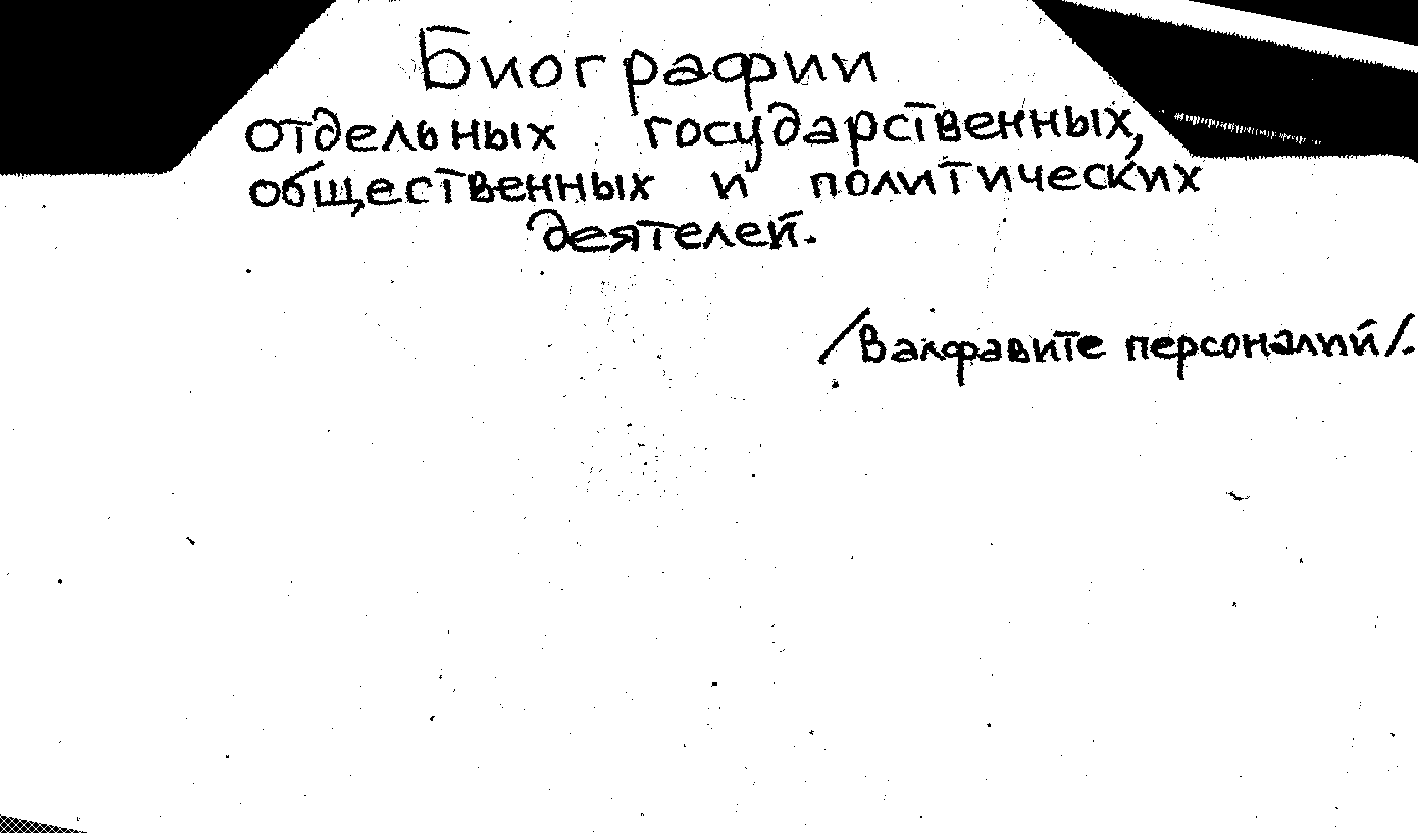 Биографии
отдельных государственных,
общественных и политических
деятелей.
/Валфавите персоналий/.